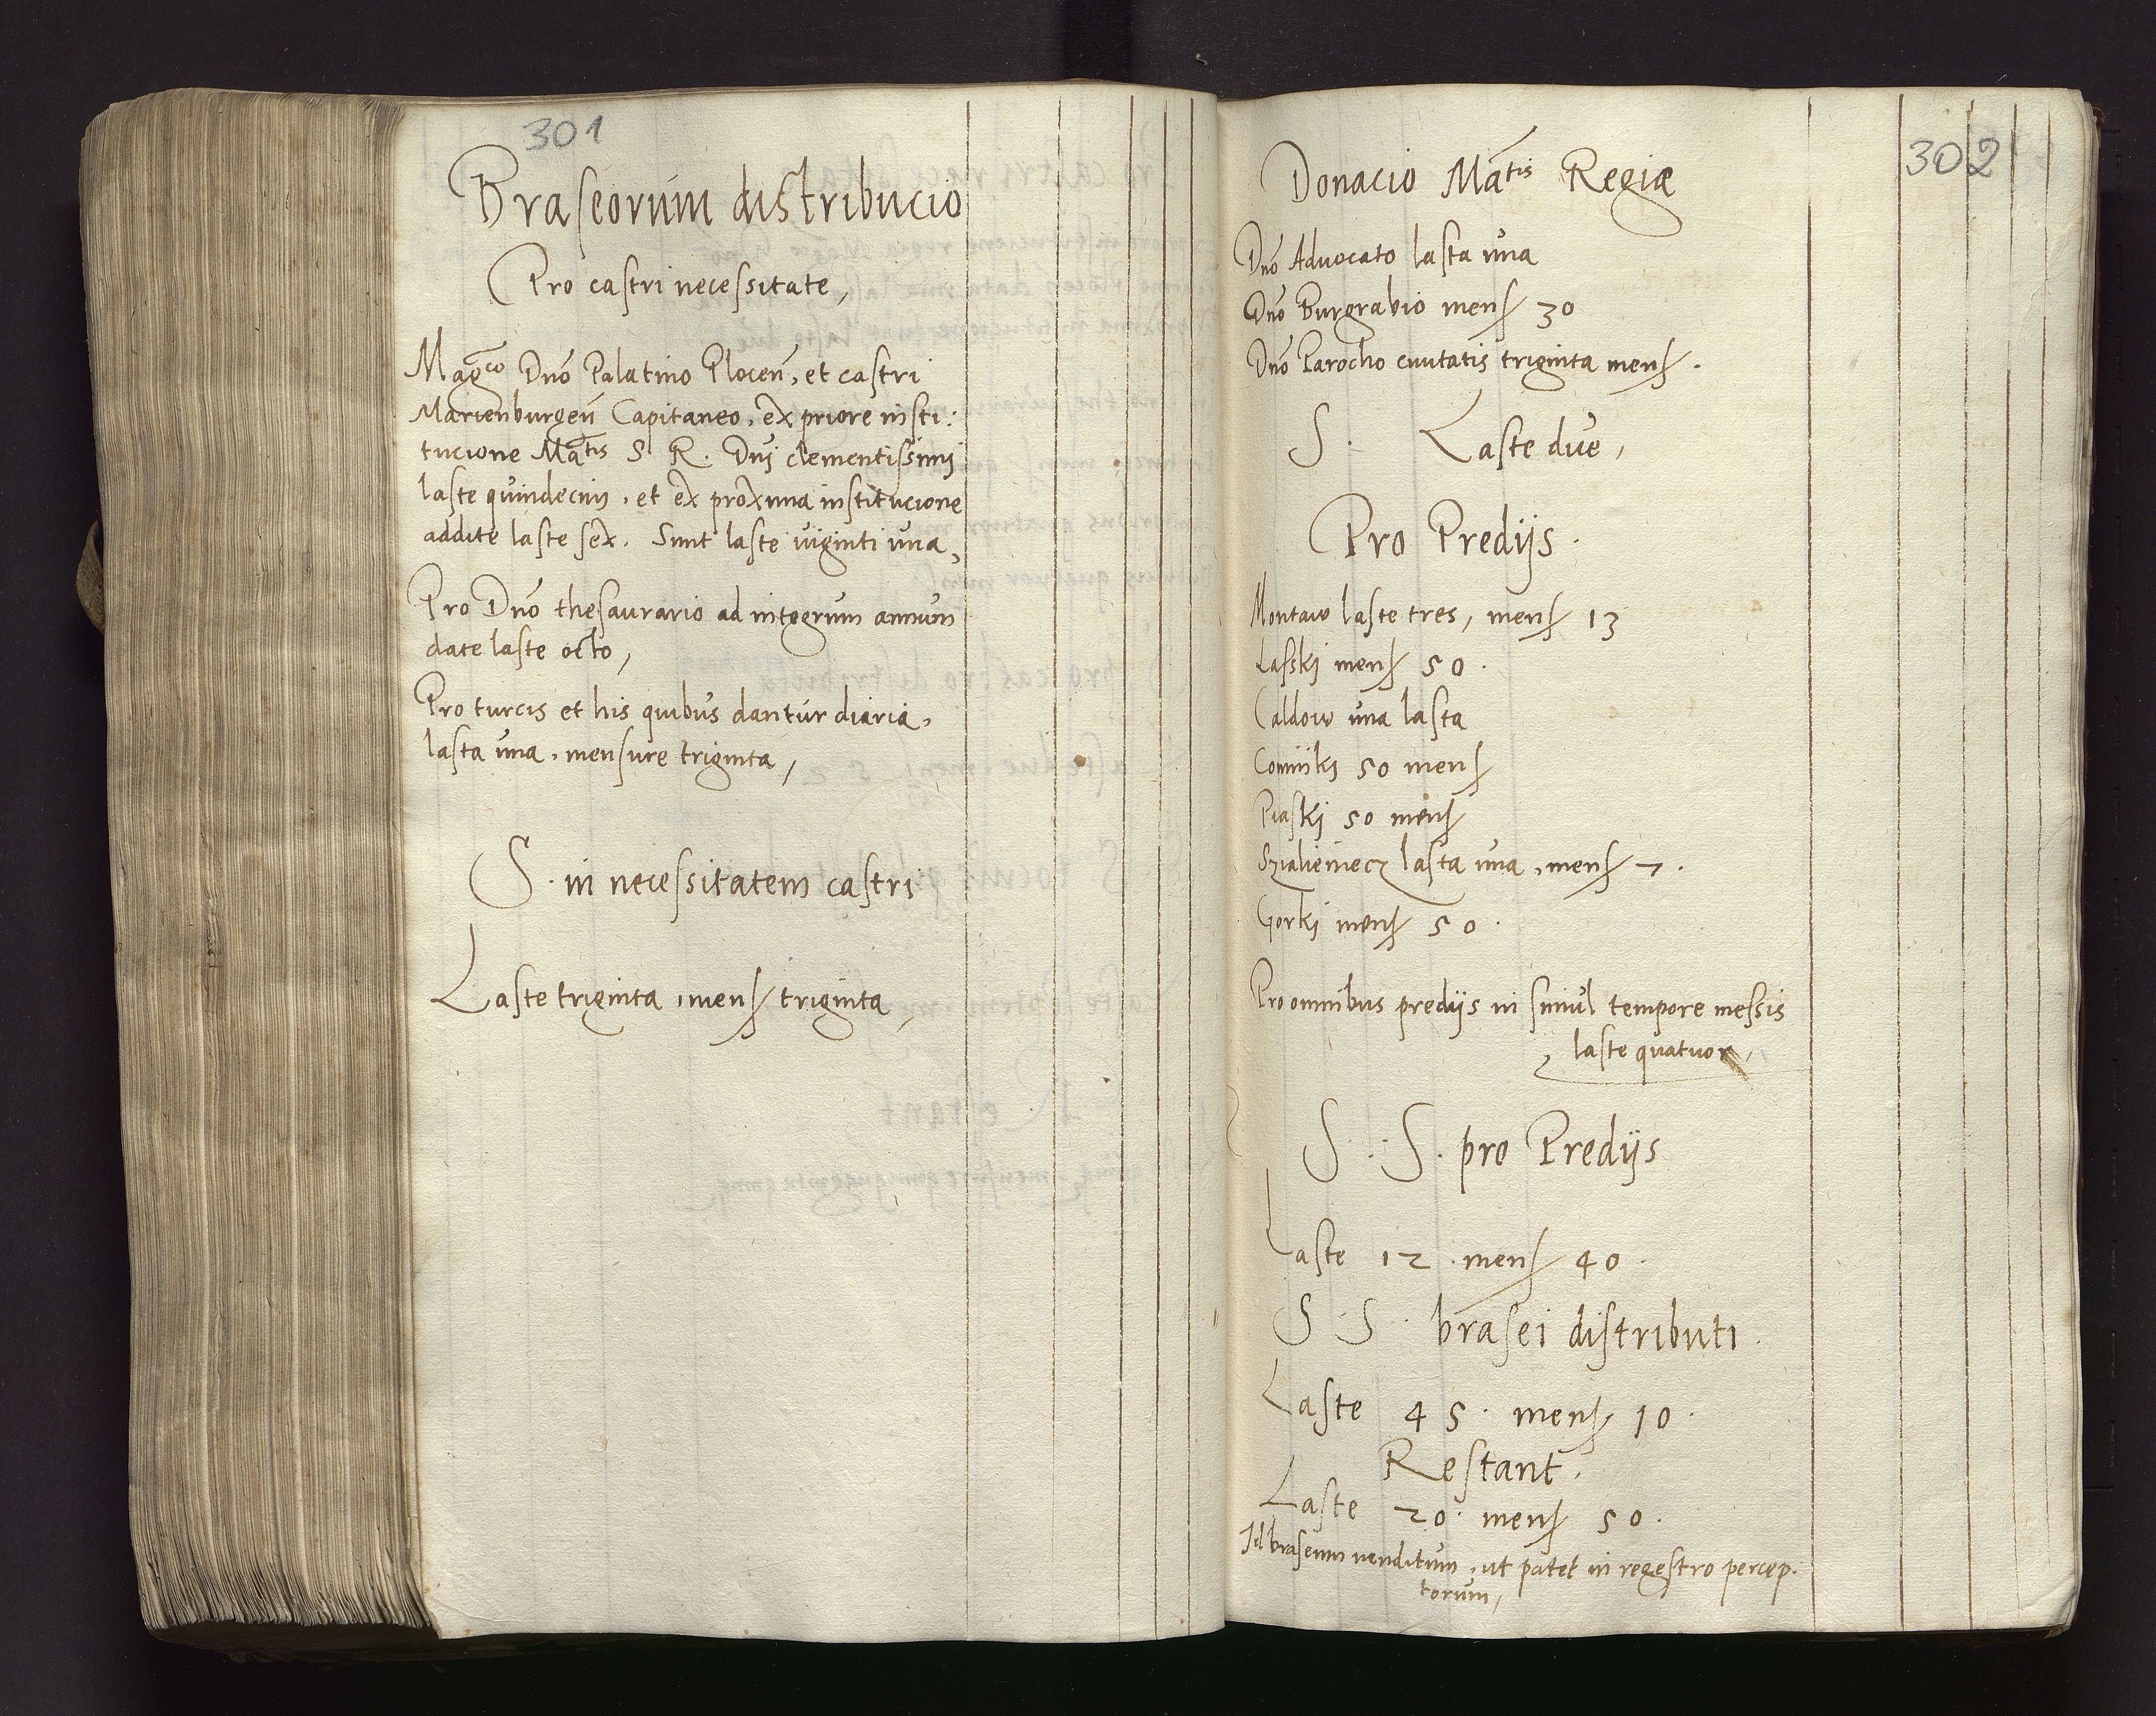 301
Braseorum distribucio
Pro castri necessitate,
Magco Dno Palatino Plocen, et castri
Marienburgen Capitaneo, ex priore insti:
tucione Matis S R. Dni clementissimi
laste quindecim, et ex proxima institucione
addite laste sex. Sunt laste viginti una,
Pro Dno thesaurario ad integrum annum
date laste octo,
Pro turcis et his quibus dantur diaria,
lasta una, mensure triginta,
S. in necessitatem castri
Laste triginta, mens triginta,
302
Donacio Matis Regiæ
Dno Advocato lasta una
Dno Burgrabio mens 30
Dno Parocho civitatis triginta mens.
S. Laste due,
Pro Predijs.
Montaw laste tres, mens 13
Lasski mens 50.
Caldow una lasta
50 mens
Piaski 50 mens
lasta una, mens 7.
Gorki mens 50.
Pro omnibus predijs in simul tempore messis
laste quatuor,
S. S. pro Predijs
Laste 12. mens 40.
S S. brasei distributi.
Laste 45. mens 10.
Restant.
Laste 20. mens 50.
Id braseum venditum, ut patet in regestro percep.
torum,